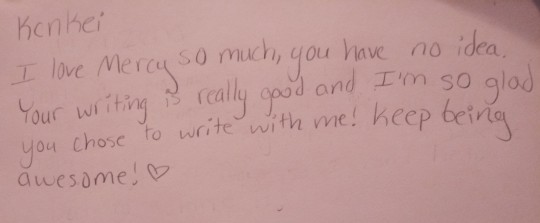 Kenkei
I love Mercy so much, you have no idea.
Your writing is really good and I'm so glad
you chose to write with me! Keep being
awesome! ♡